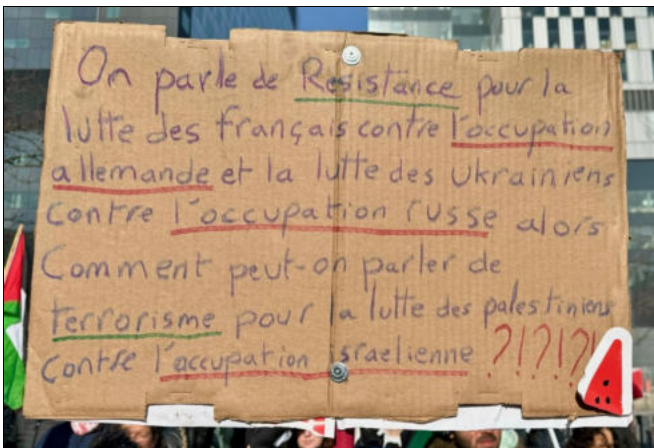 On parle de Resistance pour la
lutte des français contre l'occupation
allemande et la lutte des ukrainiens
contre l'occupation russe alors
Comment peut-on parler de
terrorisme pour la lutte des palestiniens
contre l'occupation israelienne ?!?!?!